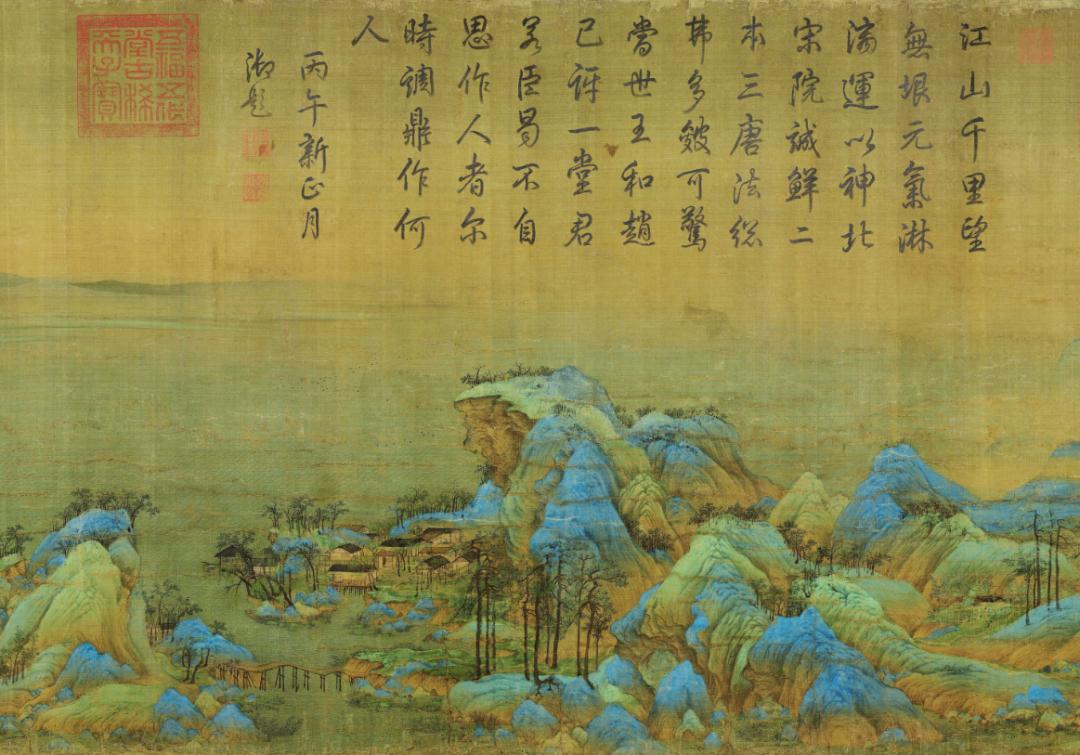 江山千里望
無垠元氣淋
漓運以神北
宋院誠鮮二
本三唐法総
弗多皴可驚
甞世王和趙
已訝一堂君
若臣曷不自
思作人者尔
時調鼎作何
人
丙午新正月
御題
五福五代
堂古稀
天子寶